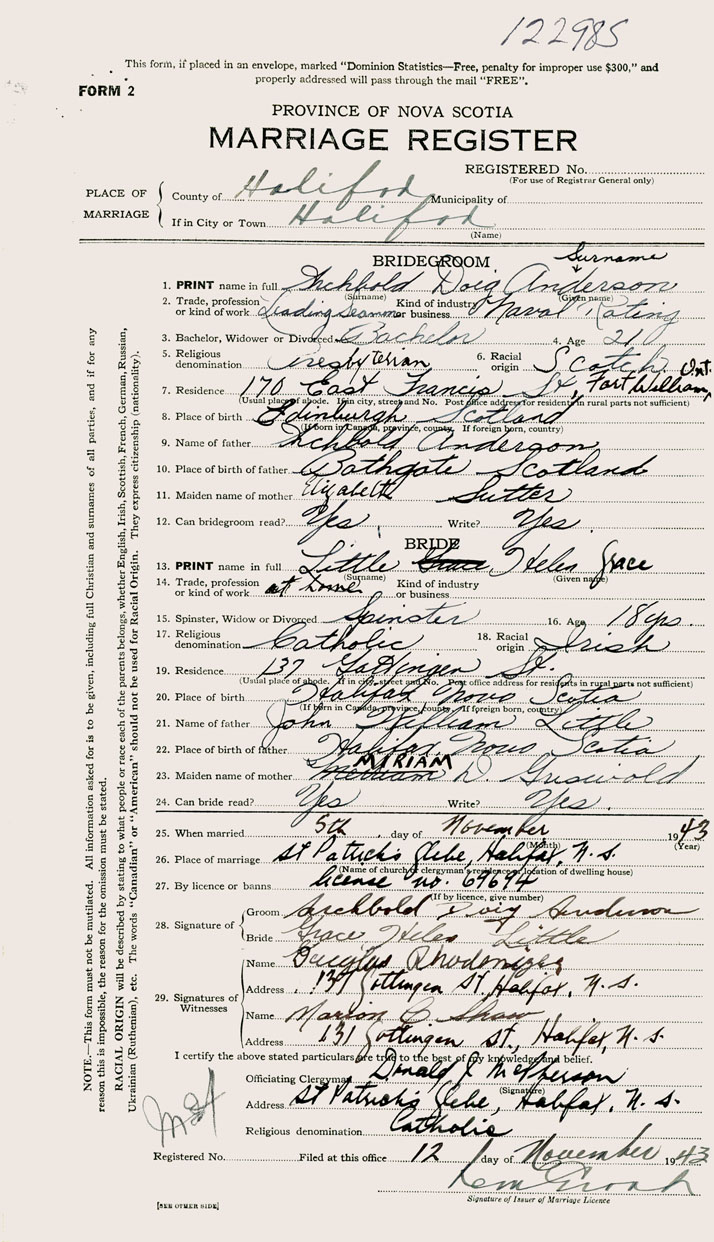 122985
This form, if placed in an envelope, marked "Dominion Statistics—Free, penalty for improper use $300," and
properly addressed will pass through the mail "FREE".
FORM 2
PROVINCE OF NOVA SCOTIA
MARRIAGE REGISTER
REGISTERED No.
(For use of Registrar General only)
PLACE OF MARRIAGE
County of Halifax Municipality of
If in City or Town Halifax
(Name)
BRIDEGROOM
Surname
1. PRINT name in full Archbold Doig Anderson
(Surname) (Given name)
2. Trade, profession or kind of work Leading Seaman Kind of industry or business Naval Rating
3. Bachelor, Widower or Divorced Bachelor 4. Age 21
5. Religious denomination Presbyterian 6. Racial origin Scotch
7. Residence 170 East Francis St, Fort William, Ont.
(Usual place of abode. If in city, street and No. Post office address for residents in rural parts not sufficient)
8. Place of birth Edinburgh Scotland
(If born in Canada, province, county. If foreign born, country)
9. Name of father Archbold Anderson
10. Place of birth of father Bathgate Scotland
11. Maiden name of mother Elizabeth Sutter
12. Can bridegroom read? Yes Write? Yes
BRIDE
13. PRINT name in full Little Grace Helen Grace
(Surname) (Given name)
14. Trade, profession or kind of work at home Kind of industry or business
15. Spinster, Widow or Divorced Spinster 16. Age 18 yrs.
17. Religious denomination Catholic 18. Racial origin Irish
19. Residence 137 Gottingen St.
(Usual place of abode. If in city, street and No. Post office address for residents in rural parts not sufficient)
20. Place of birth Halifax Nova Scotia
(If born in Canada, province, county. If foreign born, country)
21. Name of father John William Little
22. Place of birth of father Halifax Nova Scotia
MIRIAM
23. Maiden name of mother D. Griswold
24. Can bride read? Yes Write? Yes.
25. When married 5th day of November 1943
(Month) (Year)
26. Place of marriage St Patrick's Glebe, Halifax, N.S.
(Name of church or clergyman's residence or location of dwelling house)
27. By licence or banns license no. 69694
(If by licence, give number)
28. Signature of
Groom Archbold Doig Anderson
Bride Grace Helen Little
29. Signatures of Witnesses
Name Douglas Rhodenizer
Address 137 Gottingen St, Halifax, N.S.
Name Marion C Shaw
Address 131 Gottingen St., Halifax, N.S.
I certify the above stated particulars are true to the best of my knowledge and belief.
Officiating Clergyman Donald McPherson
(Signature)
Address St Patrick's Glebe, Halifax, N.S.
Religious denomination Catholic
Registered No. Filed at this office 12 day of November 1943
Signature of Issuer of Marriage Licence
[SEE OTHER SIDE]
NOTE.—This form must not be mutilated. All information asked for is to be given, including full Christian and surnames of all parties, and if for any
reason this is impossible, the reason for the omission must be stated.
RACIAL ORIGIN will be described by stating to what people or race each of the parents belongs, whether English, Irish, Scottish, French, German, Russian,
Ukrainian (Ruthenian), etc. The words "Canadian" or "American" should not be used for Racial Origin. They express citizenship (nationality).